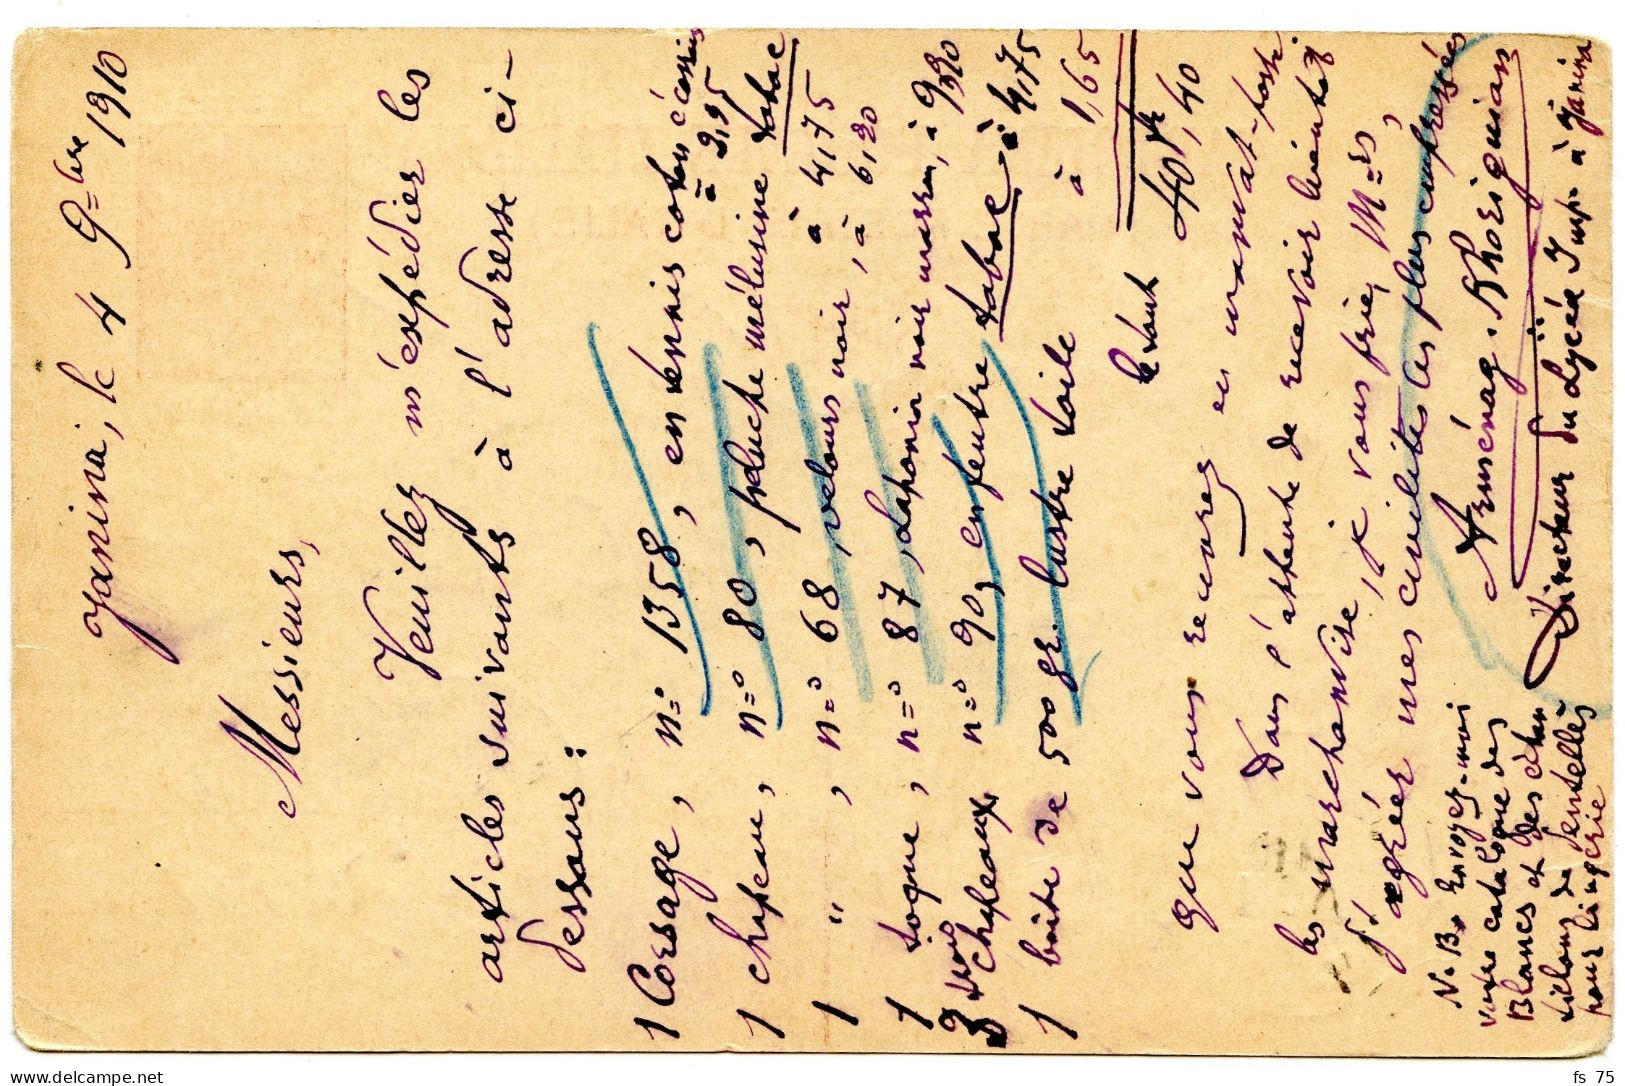 Yanina, le 4 9=bre 1910
Messieurs,
Veuillez m'expédier les
articles suivants à l'adresse ci-
dessous :
1 Corsage, n=o 1358, en tennis coton écossais
à 2,95
1 chapeau, n=o 80, peluche mélusine tabac
1 " , n=o 68, velours noir, à 4,75
1 toque, n=o 87, Laponia noir marron, à 6,20
3 trois chapeaux, n=o 90, en feutre tabac à 4,75
1 boîte de 500 gr. lustre toile à 1,65
le tout 40 fr, 40
que vous recevrez en mandat-poste.
Dans l'attente de recevoir bientôt
les marchandise, je vous prie, M=rs,
d'agréer mes civilités les plus empressées
Arménag. Khoziguian
Directeur du Lycée Imp. à Janina
N.B. Envoyez-moi
votre catalogue des
Blancs et des échan
tillons de dentelles
pour lingerie
delcampe.net
fs 75